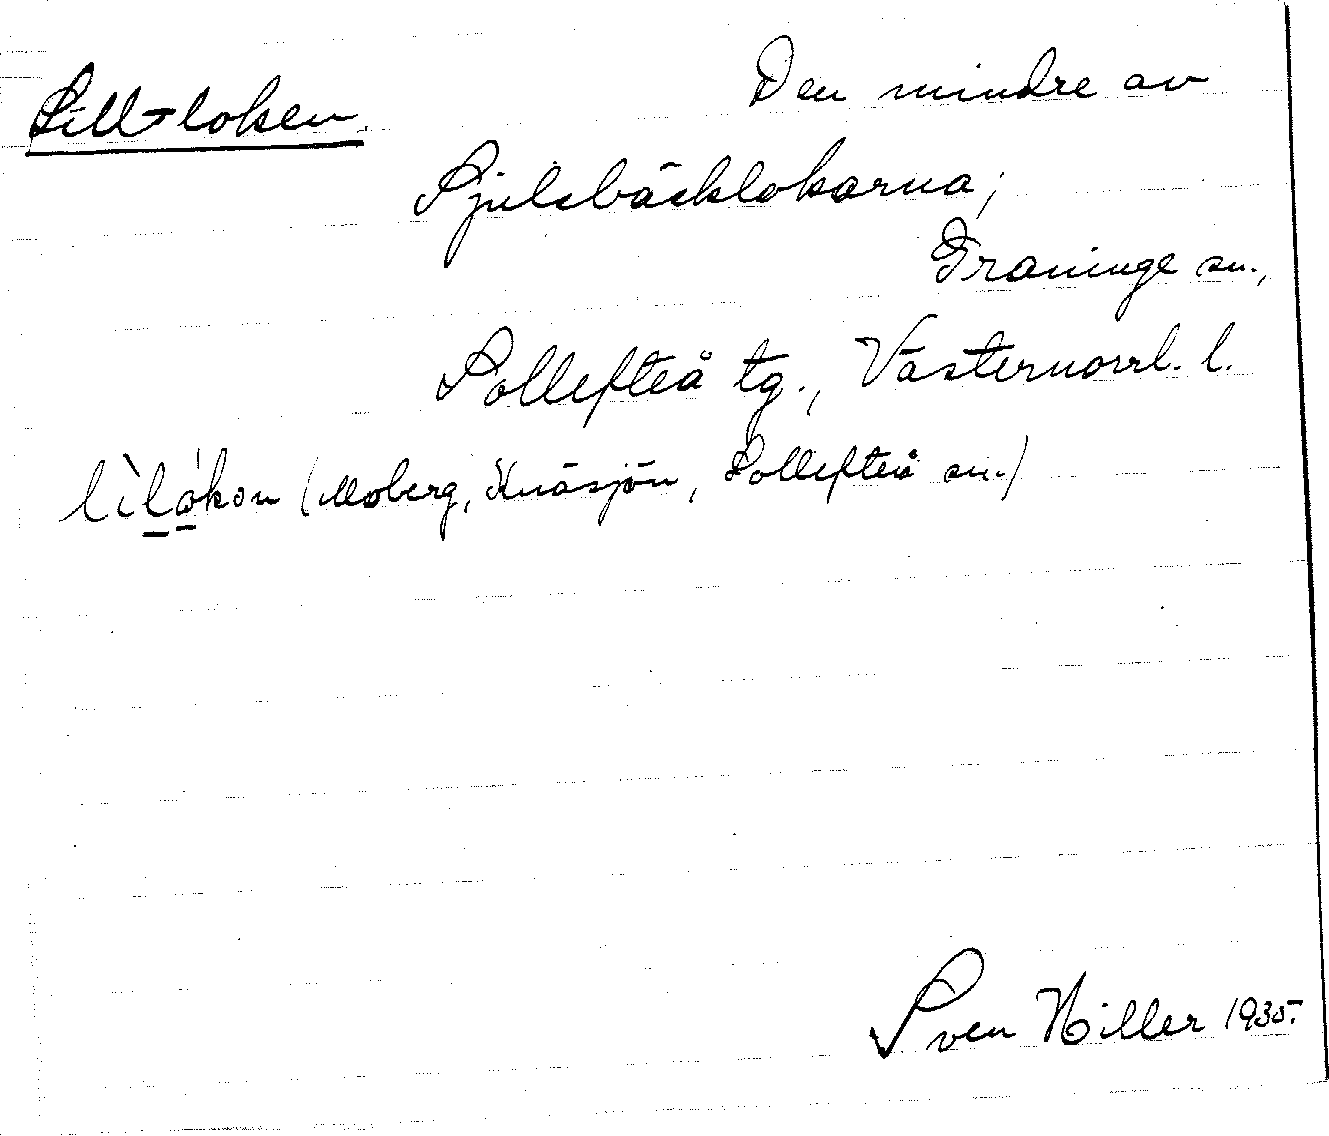 Lill-loken. Den mindre av
Sjulsbäcklokarna;
Graninge sn.,
Sollefteå tg., Västernorrl. l.
lìlókən (Moberg, Knäsjön, Sollefteå sn.)
Sven Hiller 1935.